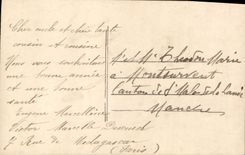 Cher oncle et chère tante
cousin et cousine
Nous vous souhaitons
une bonne année
et une bonne
santé
Eugène Marcelline
Victor Marcelle
7 Rue de Madagascar
(Paris)
Mr et Me Théodore Marie
à Montsurvent
Canton de St Malo de la Lande
Manche